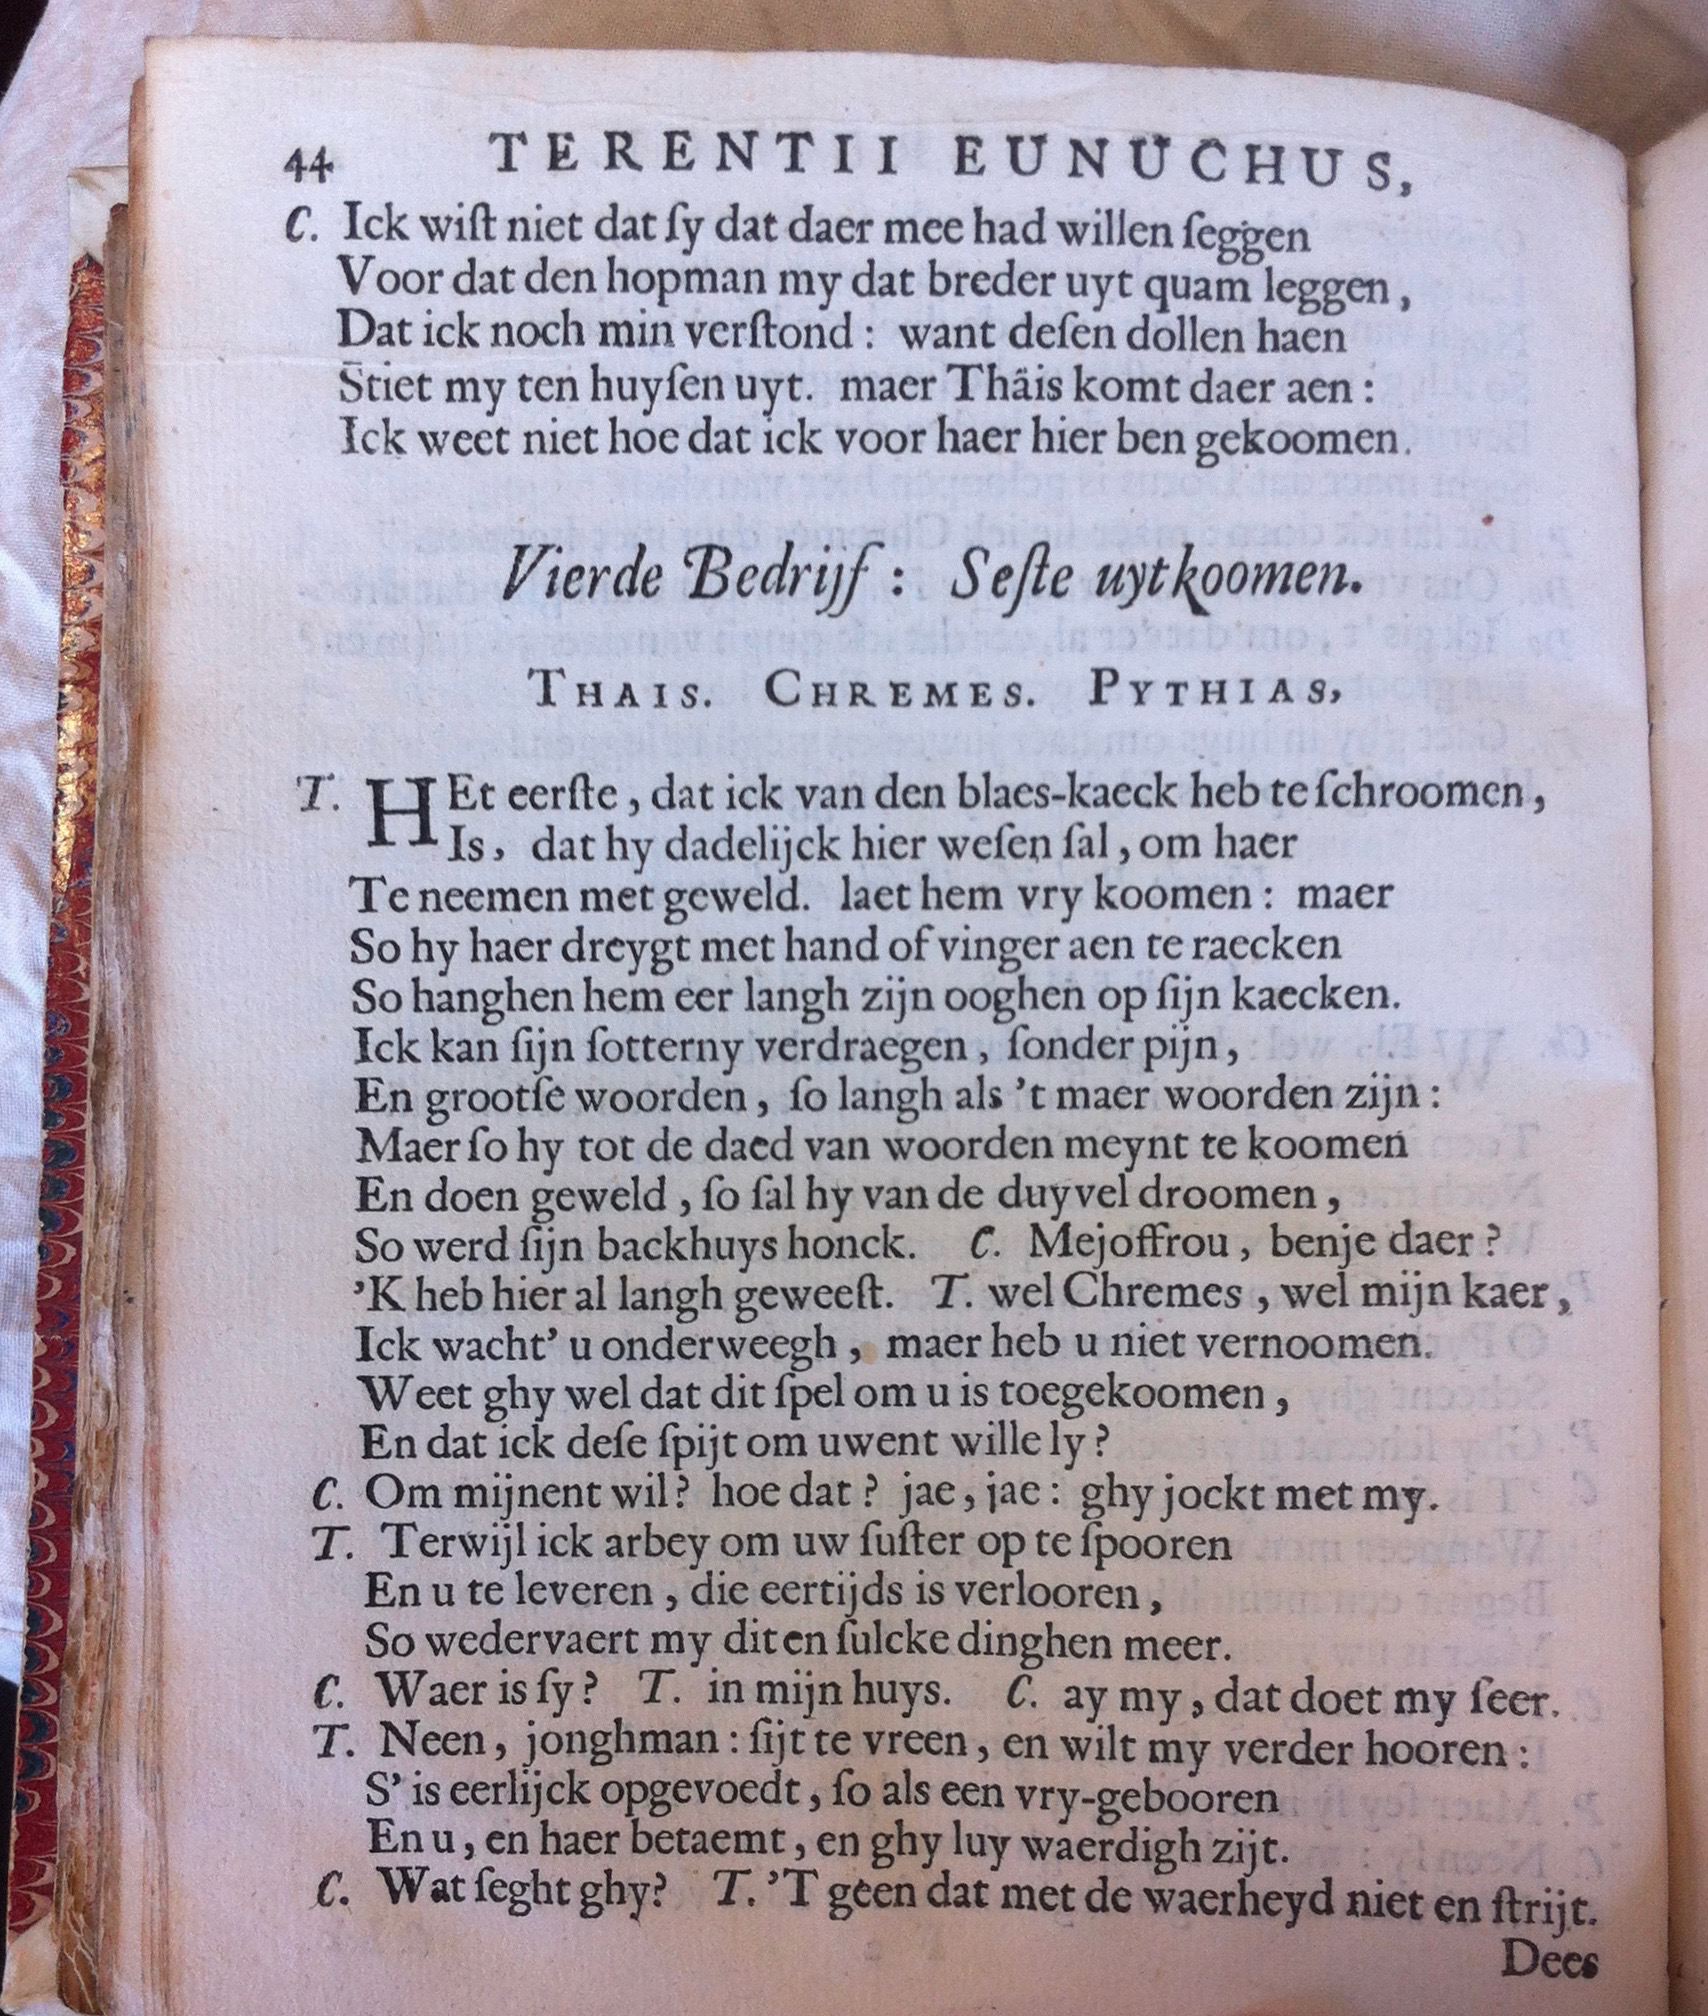 44 TERENTII EUNUCHUS,
C. Ick wiſt niet dat ſy dat daer mee had willen ſeggen
Voor dat den hopman my dat breder uyt quam leggen,
Dat ick noch min verſtond: want deſen dollen haen
Stiet my ten huyſen uyt. maer Thäis komt daer aen:
Ick weet niet hoe dat ick voor haer hier ben gekoomen.
Vierde Bedrijf: Seſte uytkoomen.
THAIS. CHREMES. PYTHIAS,
T. HEt eerſte, dat ick van den blaes-kaeck heb te ſchroomen,
Is, dat hy dadelijck hier weſen ſal, om haer
Te neemen met geweld. laet hem vry koomen: maer
So hy haer dreygt met hand of vinger aen te raecken
So hanghen hem eer langh zijn ooghen op ſijn kaecken.
Ick kan ſijn ſotterny verdraegen, ſonder pijn,
En grootſe woorden, ſo langh als 't maer woorden zijn:
Maer ſo hy tot de daed van woorden meynt te koomen
En doen geweld, ſo ſal hy van de duyvel droomen,
So werd ſijn backhuys honck. C. Mejoffrou, benje daer?
'K heb hier al langh geweeſt. T. wel Chremes, wel mijn kaer,
Ick wacht' u onderweegh, maer heb u niet vernoomen.
Weet ghy wel dat dit ſpel om u is toegekoomen,
En dat ick deſe ſpijt om uwent wille ly?
C. Om mijnent wil? hoe dat? jae, jae: ghy jockt met my.
T. Terwijl ick arbey om uw ſuſter op te ſpooren
En u te leveren, die eertijds is verlooren,
So wedervaert my dit en ſulcke dinghen meer.
C. Waer is ſy? T. in mijn huys. C. ay my, dat doet my ſeer.
T. Neen, jonghman: ſijt te vreen, en wilt my verder hooren:
S' is eerlijck opgevoedt, ſo als een vry-gebooren
En u, en haer betaemt, en ghy luy waerdigh zijt.
C. Wat ſeght ghy? T. 'T geen dat met de waerheyd niet en ſtrijt.
Dees